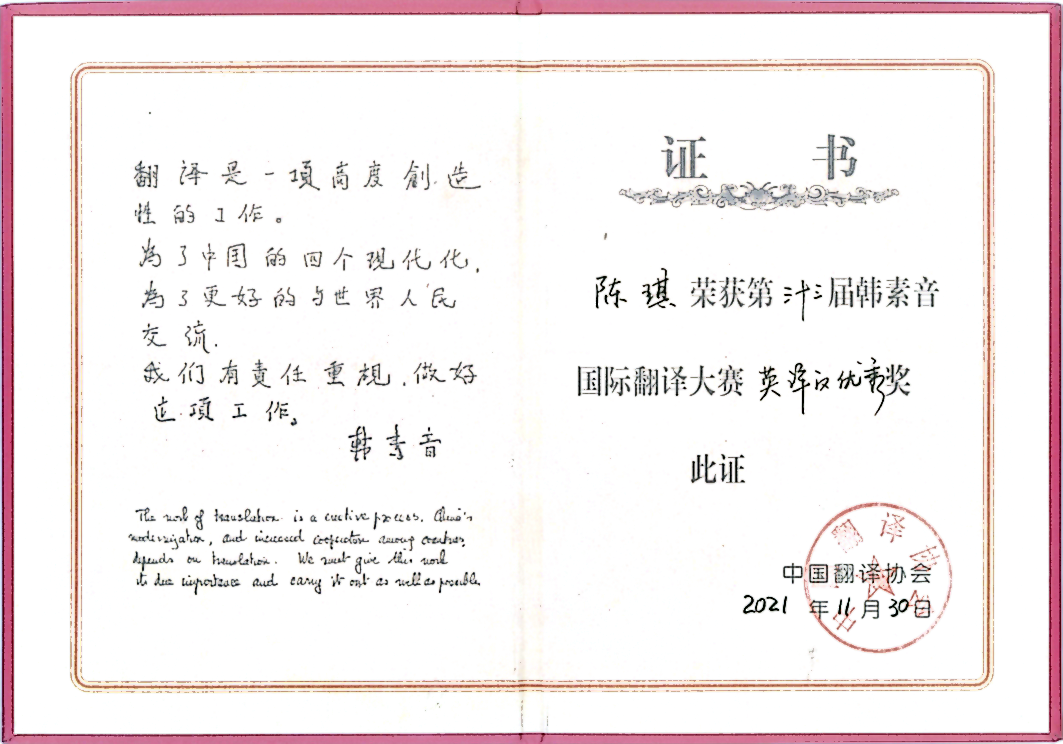 翻译是一項高度創造
性的工作。
為了中国的四个现代化,
為了更好的与世界人民
交流.
我们有責任重視,做好
这項工作。
韩素音
The work of translation is a creative process. China's
modernization, and increased cooperation among countries,
depends on translation. We must give this work
its due importance and carry it out as well as possible.
证 书
陈琪 荣获第 三十三 届韩素音
国际翻译大赛 英译汉优秀 奖
此证
中国翻译协会
2021 年 11 月 30 日
中国翻译协会